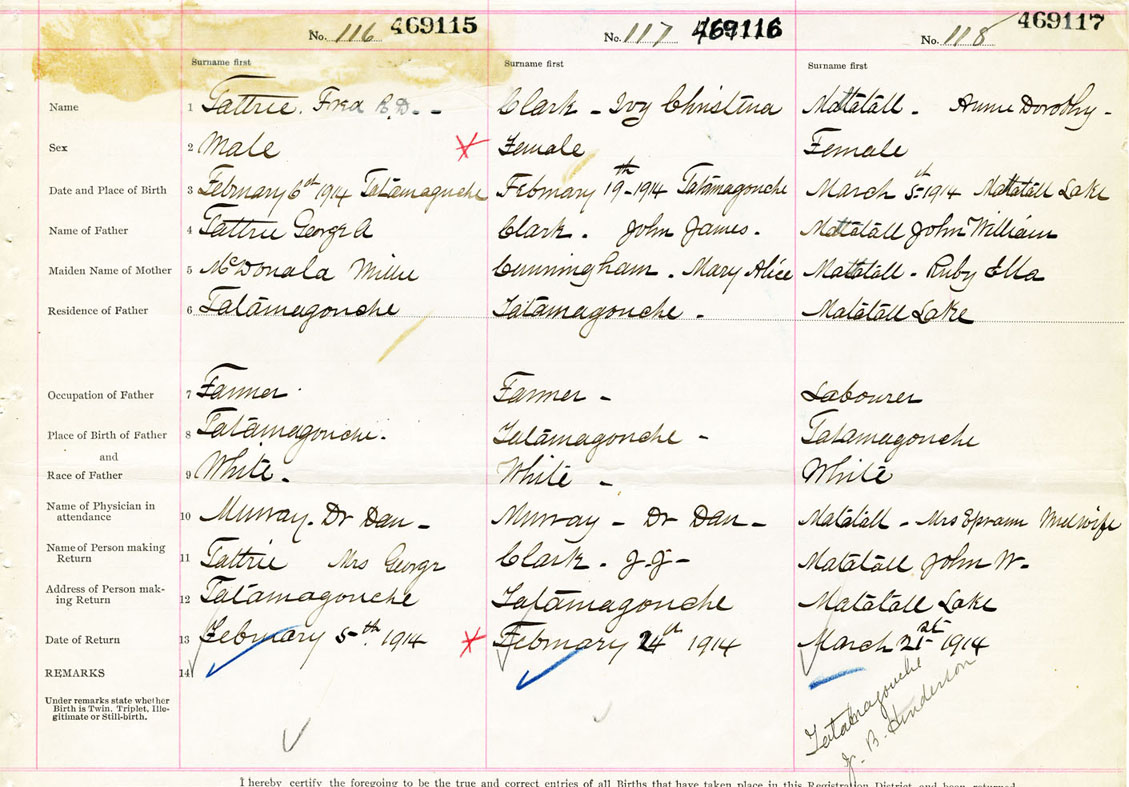 No. 116 469115 No. 117 469116 No. 118 469117
Surname first Surname first Surname first
Name 1 Tattrie. Fred R.D. - Clark - Ivy Christena Matatall - Annie Dorothy -
Sex 2 Male Female Female
Date and Place of Birth 3 February 6th 1914 Tatamagouche February 19th - 1914 Tatamagouche March 5th - 1914 Matatall Lake
Name of Father 4 Tattrie George A Clark. John James. Matatall John William
Maiden Name of Mother 5 McDonald Millie Cunningham. Mary Alice Matatall - Ruby Ella
Residence of Father 6 Tatamagouche Tatamagouche - Matatall Lake
Occupation of Father 7 Farmer Farmer - Labourer
Place of Birth of Father 8 Tatamagouche. Tatamagouche - Tatamagouche
and
Race of Father 9 White. White - White
Name of Physician in
attendance 10 Murray. Dr Dan - Murray - Dr Dan - Matatall - Mrs Epraim Midwife
Name of Person making
Return 11 Tattrie Mrs George Clark. J.J - Matatall John W.
Address of Person mak-
ing Return 12 Tatamagouche Tatamagouche Matatall Lake
Date of Return 13 February 5th. 1914 February 24th 1914 March 21st 1914
REMARKS 14
Under remarks state whether
Birth is Twin, Triplet, Ille-
gitimate or Still-birth.
Tatamagouche
J. B. Henderson
I hereby certify the foregoing to be the true and correct entries of all Births that have taken place in this Registration District and been returned